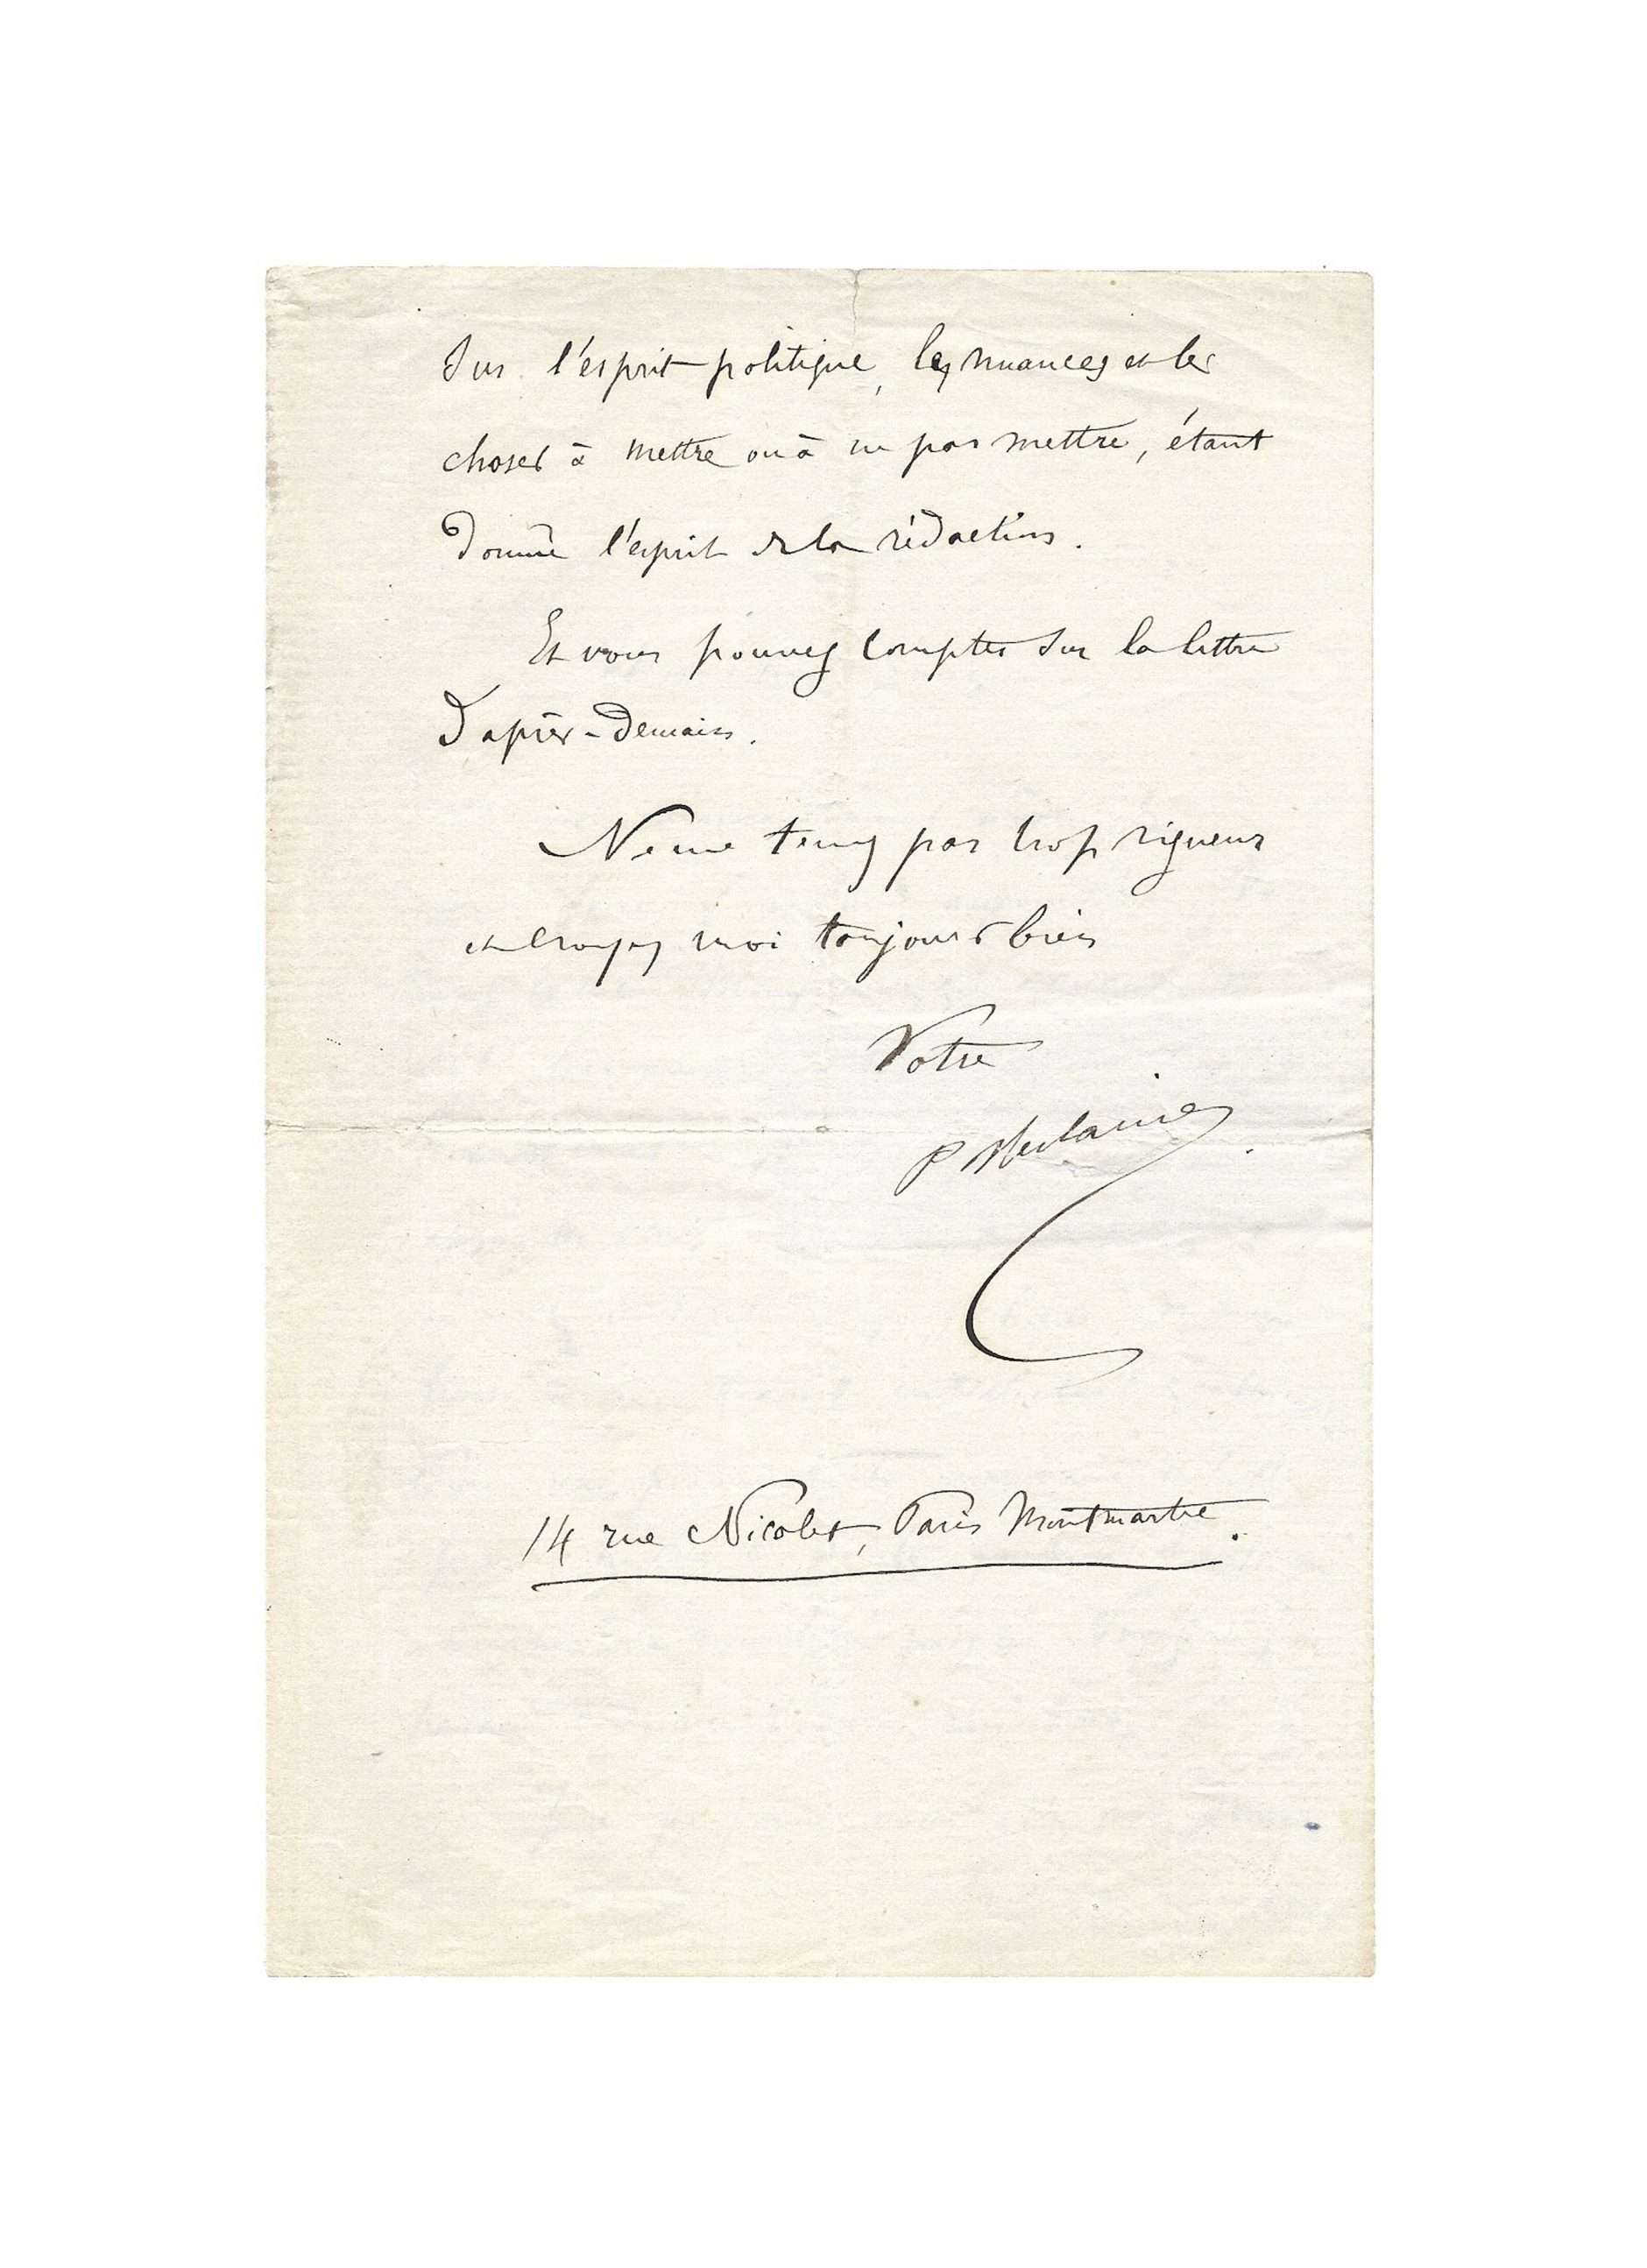 sur l'esprit politique, les nuances et les
choses à mettre ou à ne pas mettre, étant
donné l'esprit de la rédaction.
Et vous pouvez compter sur la lettre
d'après-demain.
Ne me tenez pas trop rigueur
et croyez moi toujours bien
Votre
P Verlaine
14 rue Nicolet, Paris Montmartre.